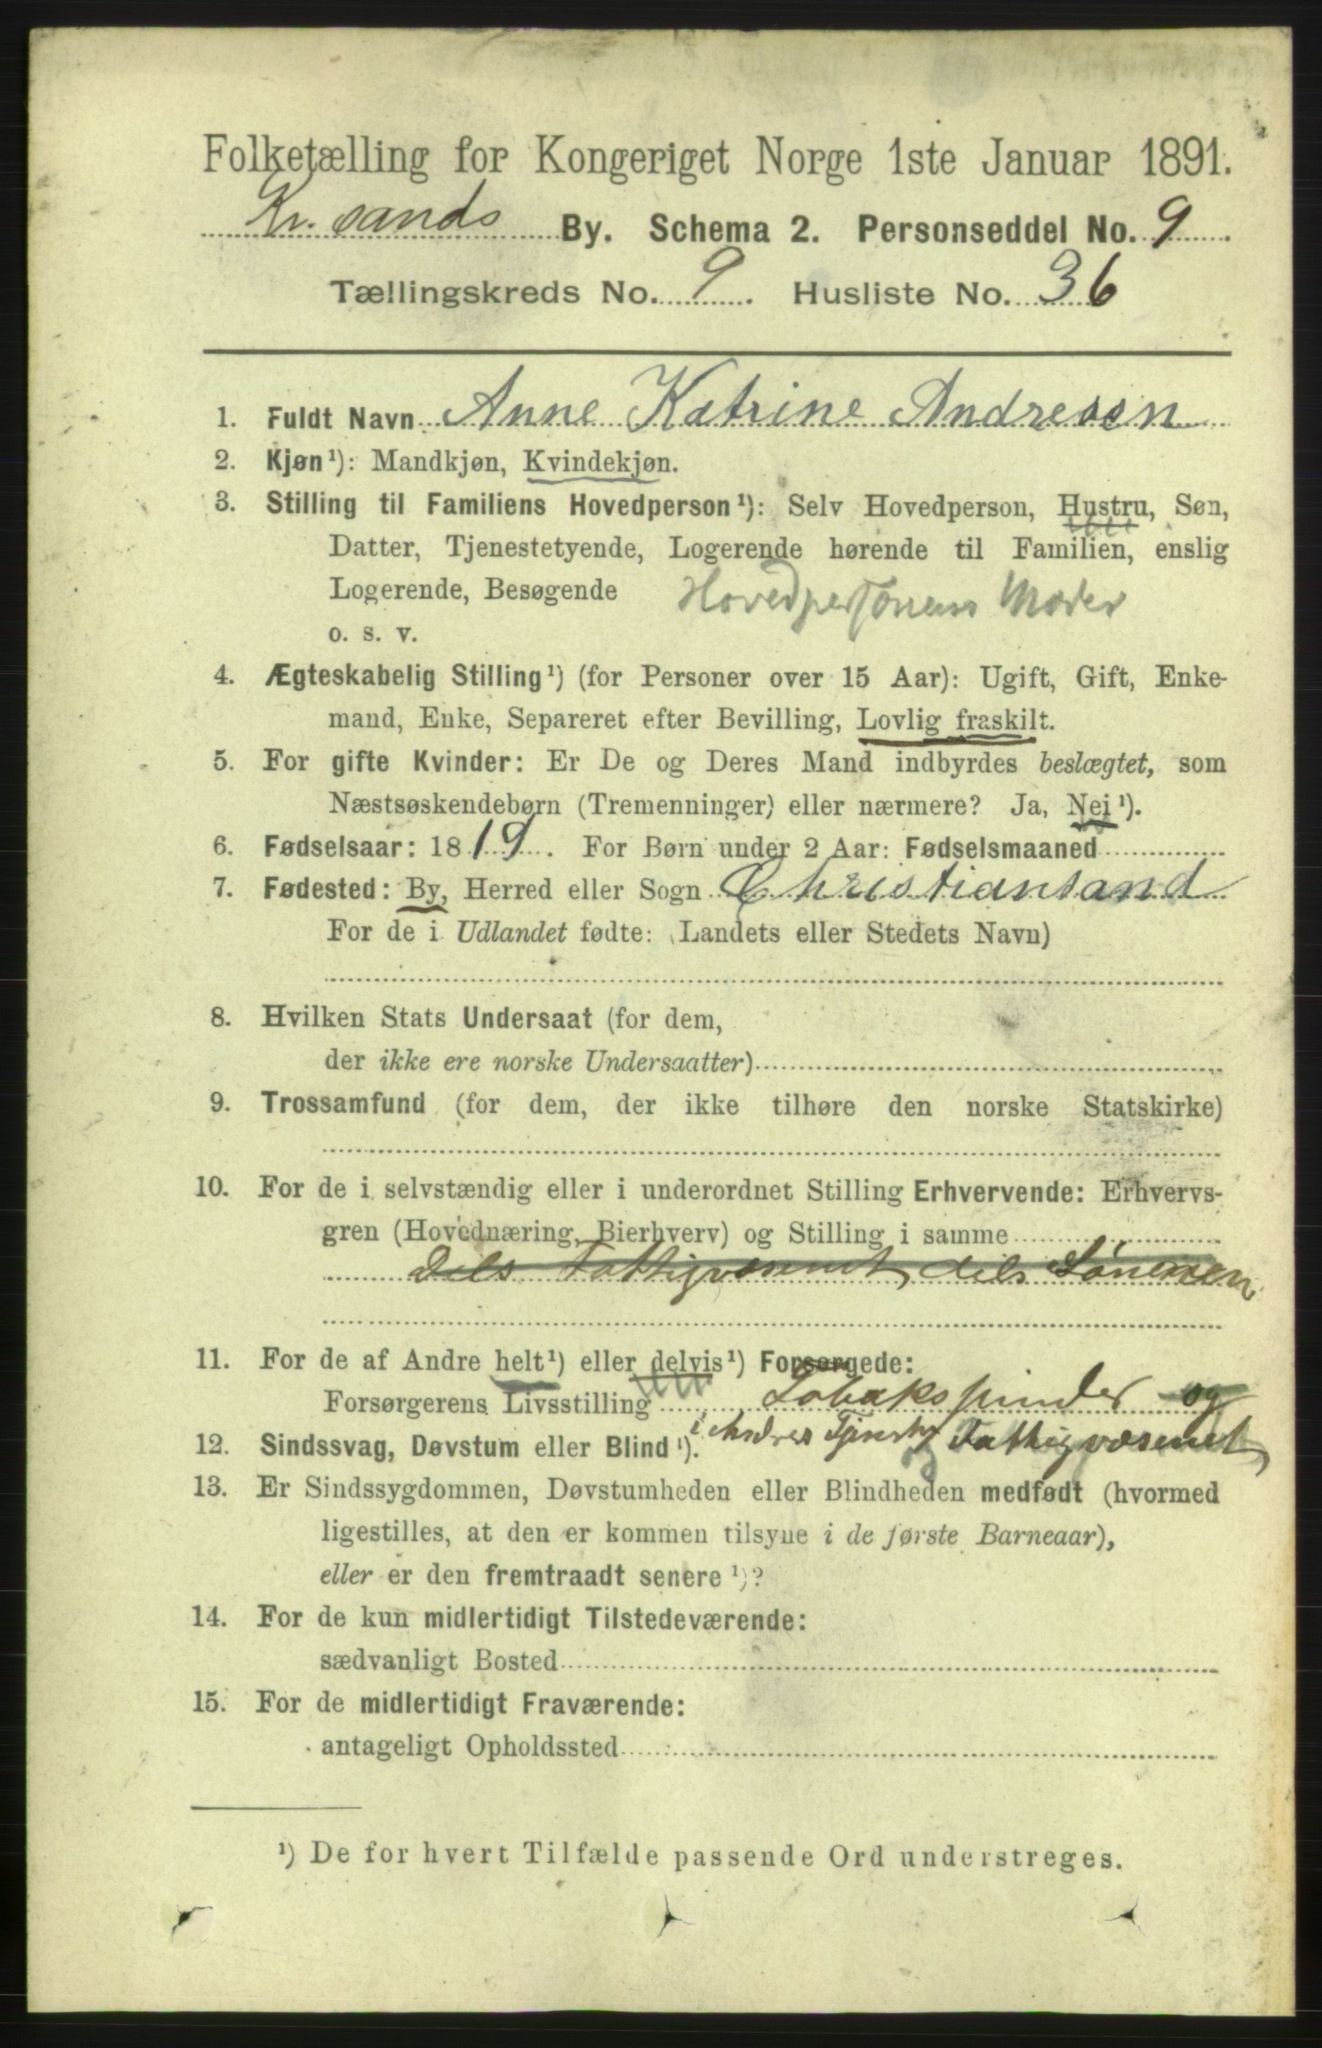 Folketælling for Kongeriget Norge 1ste Januar 1891.
Kr. sands By. Schema 2. Personseddel No. 9.
Tællingskreds No. 9. Husliste No. 36
1. Fuldt Navn Anne Katrine Andresen
2. Kjøn¹): Mandkjøn, Kvindekjøn.
3. Stilling til Familiens Hovedperson¹): Selv Hovedperson, Hustru, Søn,
Datter, Tjenestetyende, Logerende hørende til Familien, enslig
Logerende, Besøgende Hovedpersonens Moder
o. s. v.
4. Ægteskabelig Stilling¹) (for Personer over 15 Aar): Ugift, Gift, Enke-
mand, Enke, Separeret efter Bevilling, Lovlig fraskilt.
5. For gifte Kvinder: Er De og Deres Mand indbyrdes beslægtet, som
Næstsøskendebørn (Tremenninger) eller nærmere? Ja, Nei¹).
6. Fødselsaar: 1819. For Børn under 2 Aar: Fødselsmaaned
7. Fødested: By, Herred eller Sogn Christiansand
For de i Udlandet fødte: (Landets eller Stedets Navn)
8. Hvilken Stats Undersaat (for dem,
der ikke ere norske Undersaatter)
9. Trossamfund (for dem, der ikke tilhøre den norske Statskirke)
10. For de i selvstændig eller i underordnet Stilling Erhvervende: Erhvervs-
gren (Hovednæring, Bierhverv) og Stilling i samme
Dels Fattigvæsenet, dels Sønnen
11. For de af Andre helt¹) eller delvis¹) Forsørgede:
Forsørgerens Livsstilling Tobakspinder og
i Andres Tjeneste Fattigvæsenet
12. Sindssvag, Døvstum eller Blind¹).
13. Er Sindssygdommen, Døvstumheden eller Blindheden medfødt (hvormed
ligestilles, at den er kommen tilsyne i de første Barneaar),
eller er den fremtraadt senere¹)?
14. For de kun midlertidigt Tilstedeværende:
sædvanligt Bosted
15. For de midlertidigt Fraværende:
antageligt Opholdssted
¹) De for hvert Tilfælde passende Ord understreges.